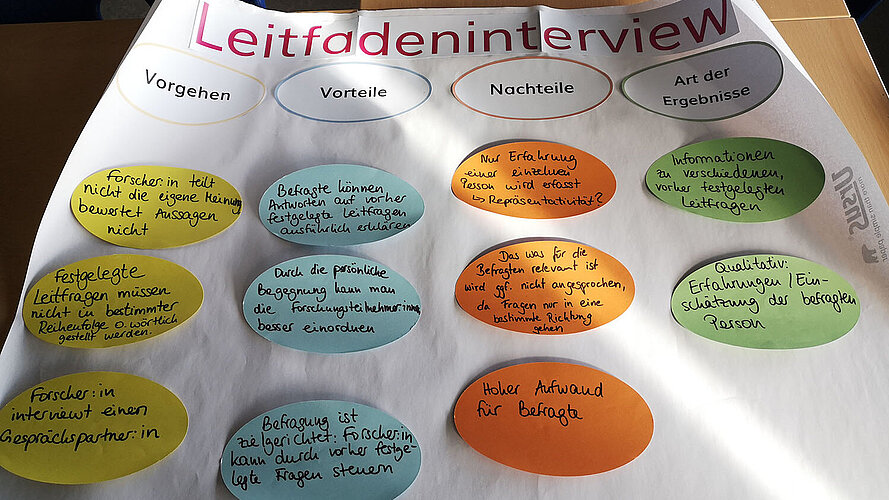 Leitfadeninterview
Vorgehen
Forscher:in teilt
nicht die eigene Meinung
bewertet Aussagen
nicht
Festgelegte
Leitfragen müssen
nicht in bestimmter
Reihenfolge o. wörtlich
gestellt werden.
Forscher:in
interviewt einen
Gesprächspartner:in
Vorteile
Befragte können
Antworten auf vorher
festgelegte Leitfragen
ausführlich erklären
Durch die persönliche
Begegnung kann man
die Forschungsteilnehmer:innen
besser einordnen
Befragung ist
zielgerichtet: Forscher:in
kann durch vorher festge-
legte Fragen steuern
Nachteile
Nur Erfahrung
einer einzelnen
Person wird erfasst
↳ Repräsentativität?
Das was für die
Befragten relevant ist
wird ggf. nicht angesprochen,
da Fragen nur in eine
bestimmte Richtung
gehen
Hoher Aufwand
für Befragte
Art der
Ergebnisse
Informationen
zu verschiedenen,
vorher festgelegten
Leitfragen
Qualitativ:
Erfahrungen / Ein-
schätzung der befragten
Person
SUSTIU